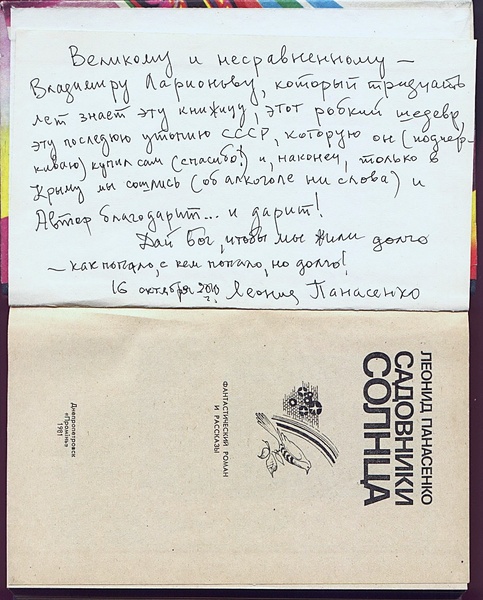 Великому и несравненному —
Владимиру Ларионову, который тридцать
лет знает эту книжицу, этот робкий шедевр,
эту последнюю утопию СССР, которую он (подчер-
киваю) купил сам (спасибо!) и, наконец, только в
Крыму мы сошлись (об алкоголе ни слова) и
Автор благодарит... и дарит!
Дай Бог, чтобы мы жили долго
— как попало, с кем попало, но долго!
16 октября 2010 г. Леонид Панасенко
ЛЕОНИД ПАНАСЕНКО
САДОВНИКИ
СОЛНЦА
ФАНТАСТИЧЕСКИЙ РОМАН
И РАССКАЗЫ
Днепропетровск
«Промінь»
1981